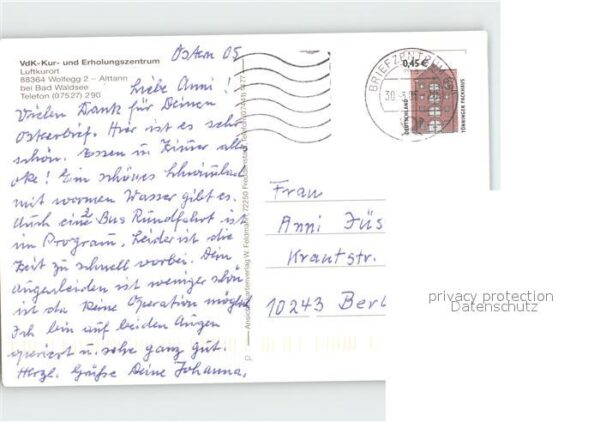 VdK-Kur- und Erholungszentrum
Luftkurort
88364 Wolfegg 2 – Alttann
bei Bad Waldsee
Telefon (07527) 290
Ostern 05
Liebe Anni!
Vielen Dank für Deinen
Osterbrief. Hier ist es sehr
schön. Essen u. Zimmer alles
oke! Ein schönes Schwimmbad
mit warmen Wasser gibt es.
Auch eine Bus Rundfahrt ist
im Program, Leider ist die
Zeit zu schnell vorbei. Dein
Augenleiden ist weniger schön
ist da keine Operation möglich
Ich bin auf beiden Augen
operiert u. sehe ganz gut.
Herzl. Grüße Deine Johanna,
Ansichtskartenverlag W. Feldmann, 72250 Freudenstadt
BRIEFZENTRUM
0,45 €
DEUTSCHLAND
TÖNNINGEN PACKHAUS
Frau
Anni Füs
Krautstr.
10243 Berl
privacy protection
Datenschutz